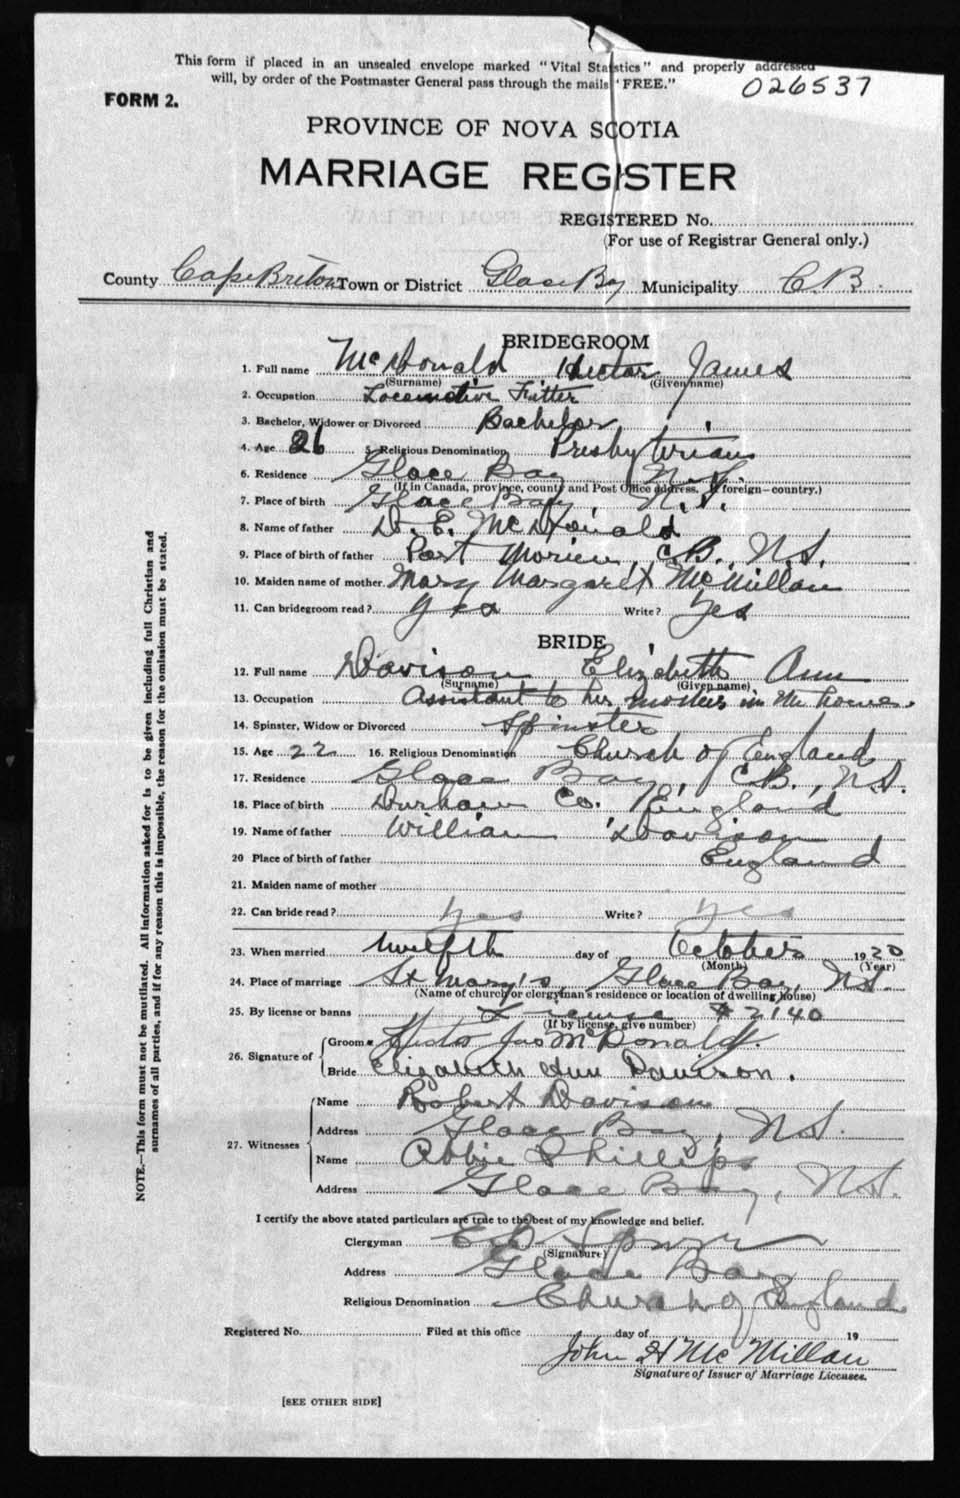 This form if placed in an unsealed envelope marked "Vital Statistics" and properly addressed
will, by order of the Postmaster General pass through the mails "FREE."
026537
FORM 2.
PROVINCE OF NOVA SCOTIA
MARRIAGE REGISTER
REGISTERED No.
(For use of Registrar General only.)
County Cape Breton Town or District Glace Bay Municipality C.B.
BRIDEGROOM
1. Full name McDonald Hector James
(Surname) (Given name)
2. Occupation Locomotive Fitter
3. Bachelor, Widower or Divorced Bachelor
4. Age 26 5. Religious Denomination Presbyterian
6. Residence Glace Bay N.S.
(If in Canada, province, county and Post Office address. If foreign—country.)
7. Place of birth Glace Bay N.S.
8. Name of father D. E. McDonald
9. Place of birth of father Port Morien, C.B., N.S.
10. Maiden name of mother Mary Margaret McMillan
11. Can bridegroom read? Yes Write? Yes
BRIDE
12. Full name Davison Elizabeth Ann
(Surname) (Given name)
13. Occupation Assistant to her mother in the house.
14. Spinster, Widow or Divorced Spinster
15. Age 22 16. Religious Denomination Church of England
17. Residence Glace Bay, C.B., N.S.
18. Place of birth Durham Co. England
19. Name of father William Davison
20 Place of birth of father England
21. Maiden name of mother
22. Can bride read? Yes Write? Yes
23. When married twelfth day of October 1920
(Month) (Year)
24. Place of marriage St Mary's Glace Bay, N.S.
(Name of church or clergyman's residence or location of dwelling house)
25. By license or banns License #2140
(If by license, give number)
26. Signature of Groom Hector Jas McDonald.
Bride Elizabeth Ann Davison.
27. Witnesses
Name Robert Davison
Address Glace Bay, N.S.
Name Abbie Phillips
Address Glace Bay, N.S.
I certify the above stated particulars are true to the best of my knowledge and belief.
Clergyman
(Signature)
Address Glace Bay
Religious Denomination Church of England
Registered No. Filed at this office day of 19
John H McMillan
Signature of Issuer of Marriage Licenses.
[SEE OTHER SIDE]
NOTE.—This form must not be mutilated. All information asked for is to be given including full Christian and
surnames of all parties, and if for any reason this is impossible, the reason for the omission must be stated.